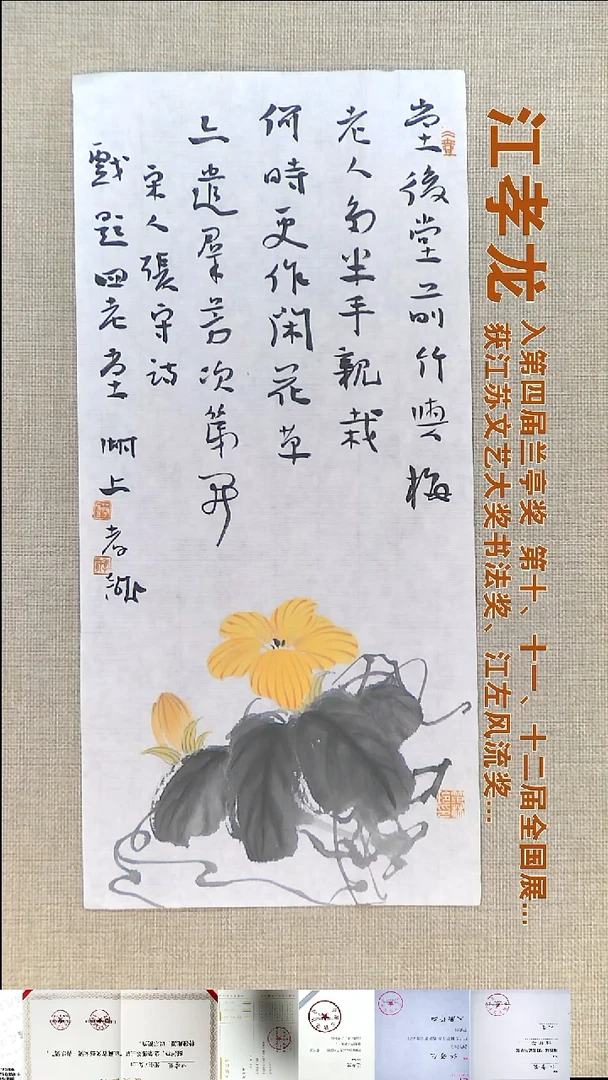 江孝龙
入第四届兰亭奖 第十、十一、十二届全国展...
获江苏文艺大奖书法奖、江左风流奖...
堂後堂前竹與梅
老人多半手親栽
何時更作閑花草
亦遣羣芳次第開
宋人張守詩
戲題四老堂 湖上孝龍